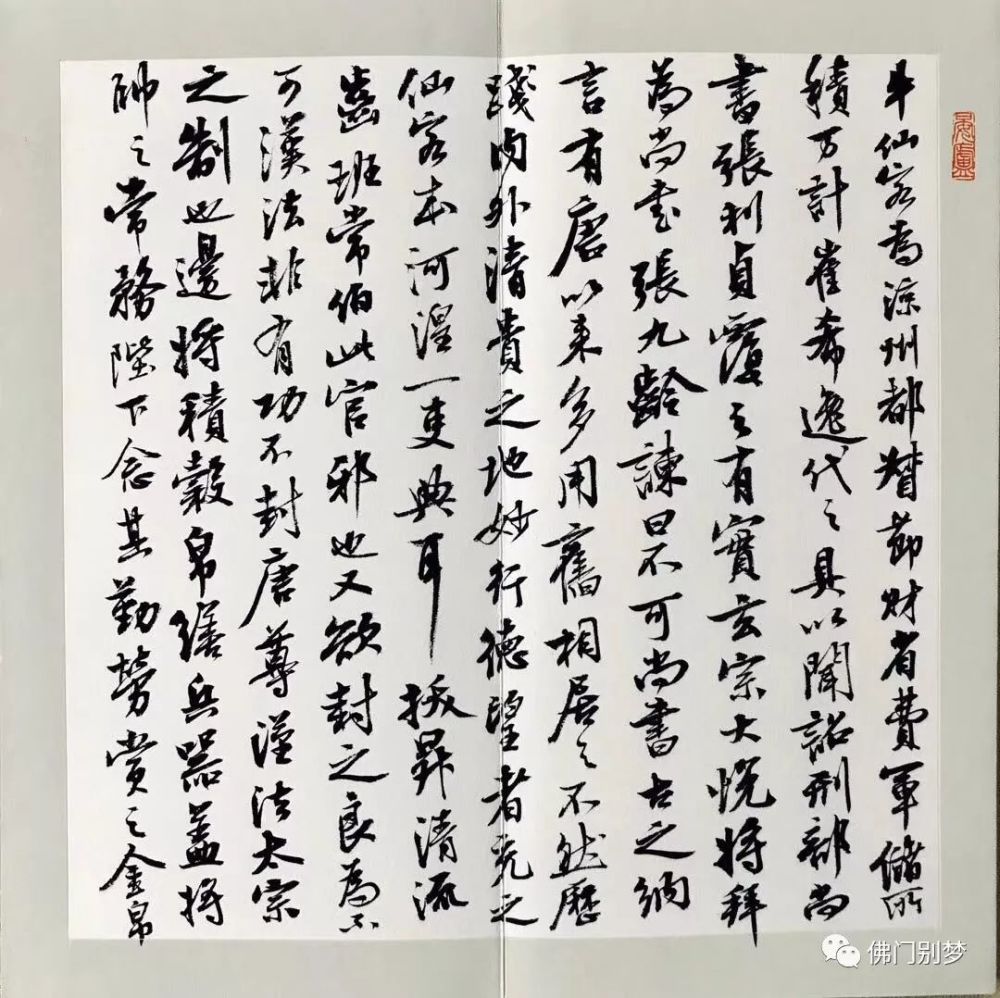 牛仙客為涼州都督節財省費軍儲所
積万計崔希逸代之具以聞詔刑部尚
書張利貞覆之有實玄宗大悅將拜
為尚書張九齡諫曰不可尚書古之納
言有唐以來多用舊相居之不然歷
踐內外清貴之地妙行德望者充之
仙客本河湟一吏典耳拔昇清流
齒班常伯此官邪也又欲封之良為不
可漢法非有功不封唐尊漢法太宗
之制也邊將積穀帛繕兵器蓋將
帥之常務陛下念其勤勞賞之金帛
佛门别梦